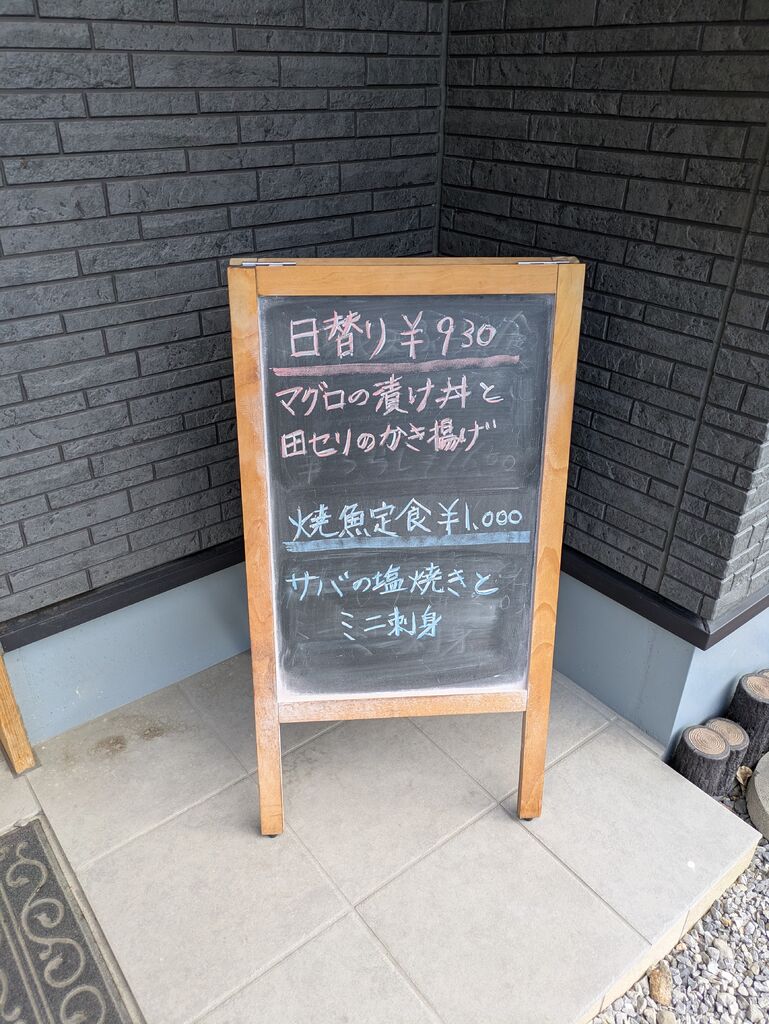 日替り ¥930
マグロの漬け丼と
田セリのかき揚げ
焼魚定食 ¥1,000
サバの塩焼きと
ミニ刺身